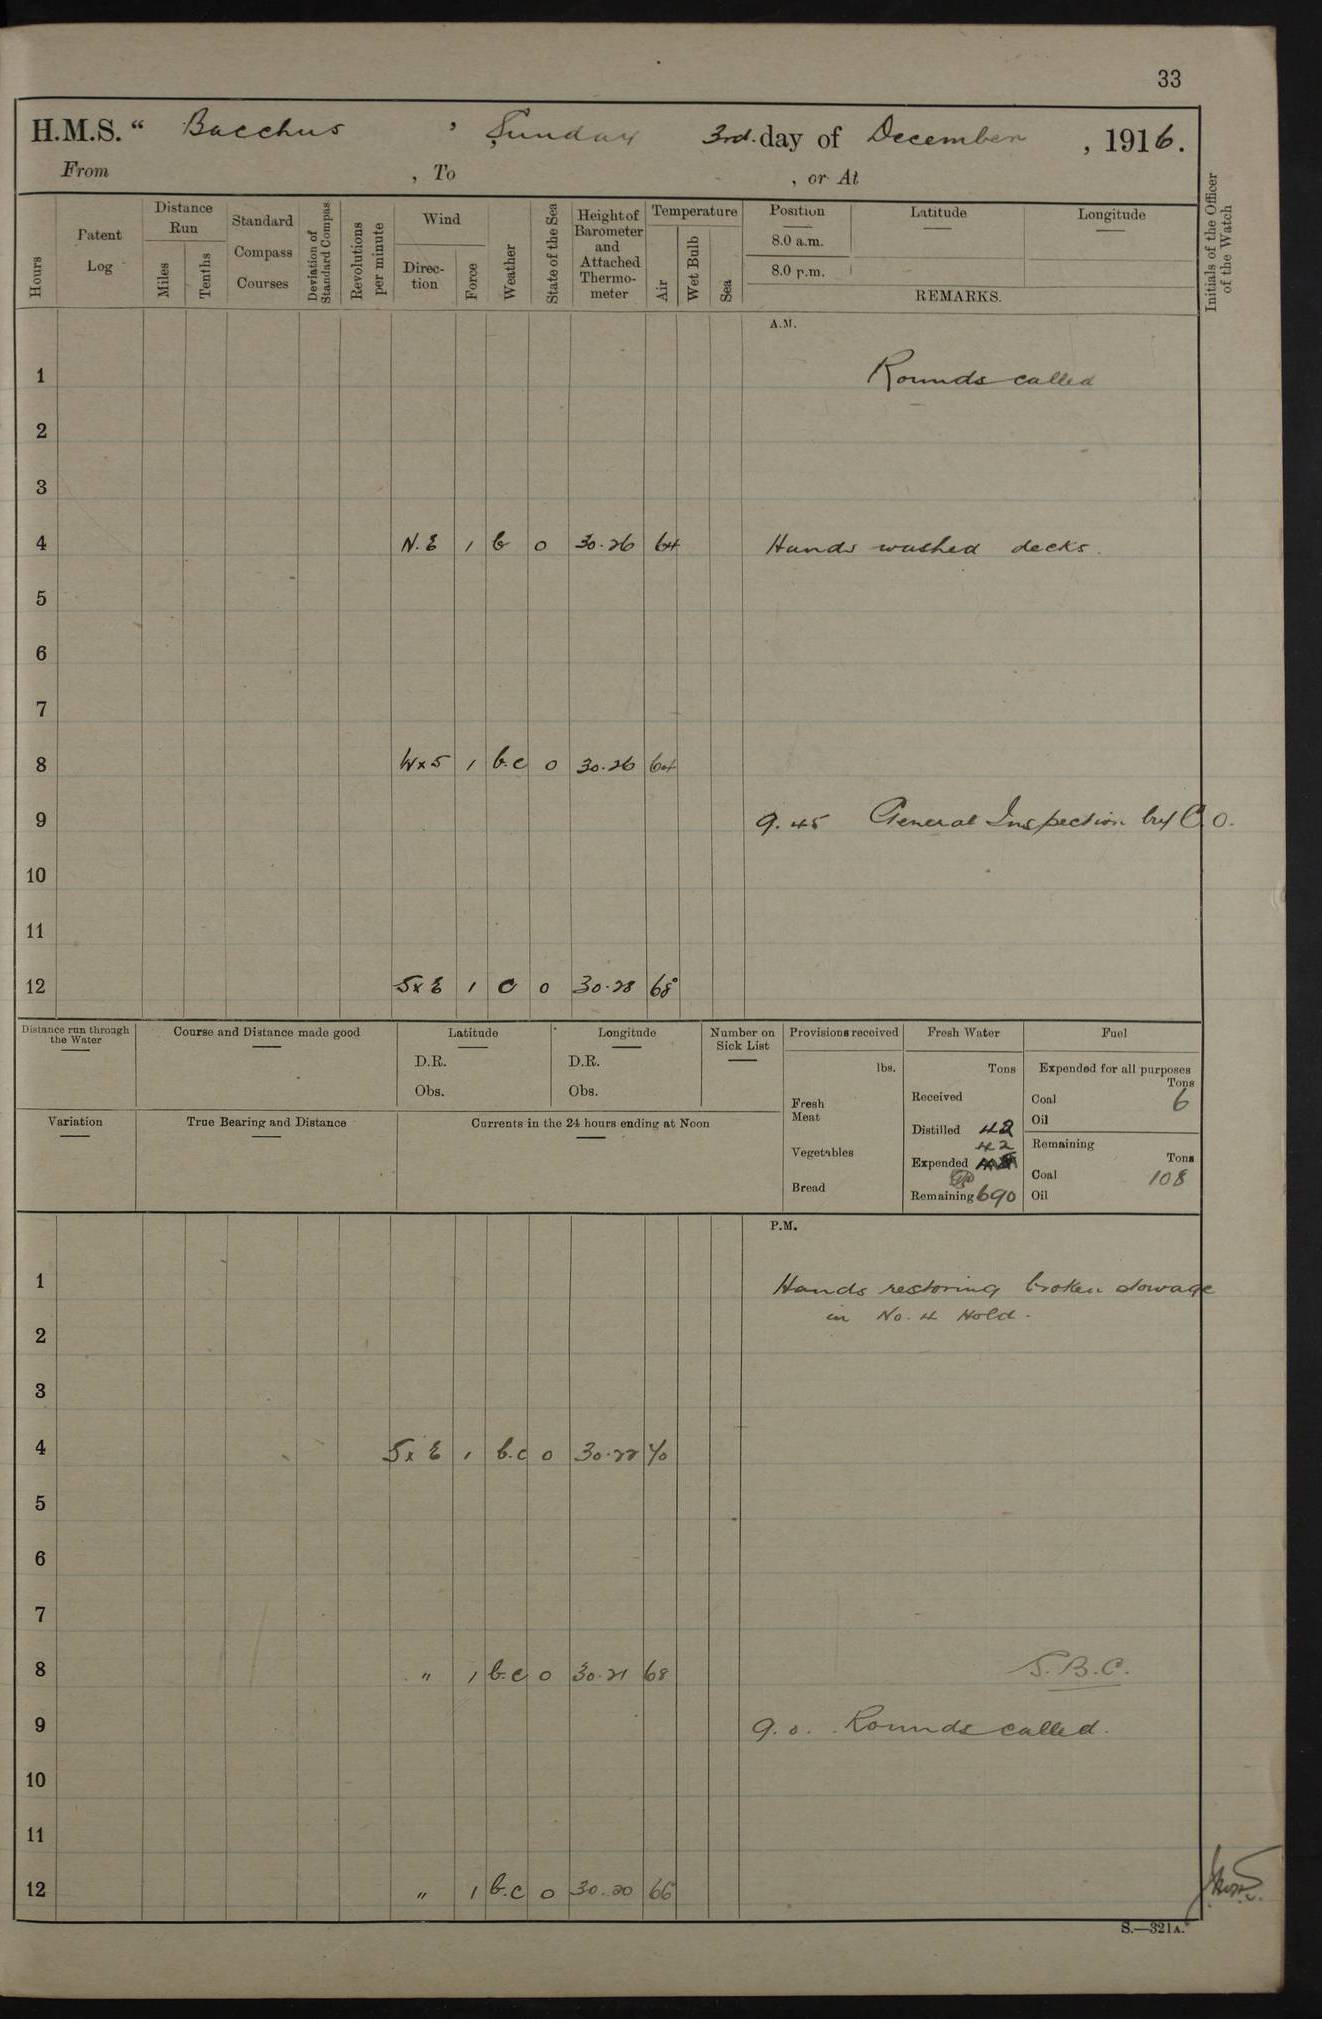 33
H.M.S. “ Bacchus , Sunday 3rd. day of December , 1916.
From , To , or At
Hours
Patent Log
Distance Run
Miles
Tenths
Standard Compass Courses
Deviation of Standard Compass
Revolutions per minute
Wind
Direction
Force
Weather
State of the Sea
Height of Barometer and Attached Thermometer
Temperature
Air
Wet Bulb
Sea
Position
8.0 a.m.
8.0 p.m.
Latitude
Longitude
REMARKS.
Initials of the Officer of the Watch
A.M.
1 Rounds called
2
3
4 N.E 1 b 0 30.26 64 Hands washed decks.
5
6
7
8 WxS 1 b.c 0 30.26 64
9 9.45 General Inspection by C.O.
10
11
12 SxE 1 c 0 30.28 68°
Distance run through the Water
Course and Distance made good
Latitude
D.R.
Obs.
Longitude
D.R.
Obs.
Number on Sick List
Provisions received
lbs.
Fresh Meat
Vegetables
Bread
Fresh Water
Tons
Received
Distilled 42
42
Expended
Remaining 690
Fuel
Expended for all purposes
Tons
Coal 6
Oil
Remaining
Tons
Coal 108
Oil
Variation
True Bearing and Distance
Currents in the 24 hours ending at Noon
P.M.
1 Hands restoring broken stowage
in No. 4 Hold.
2
3
4 SxE 1 b.c 0 30.22 70
5
6
7
8 " 1 b.c 0 30.21 68 S.B.C.
9 9.0. Rounds called.
10
11
12 " 1 b.c 0 30.20 66
S.—321A.